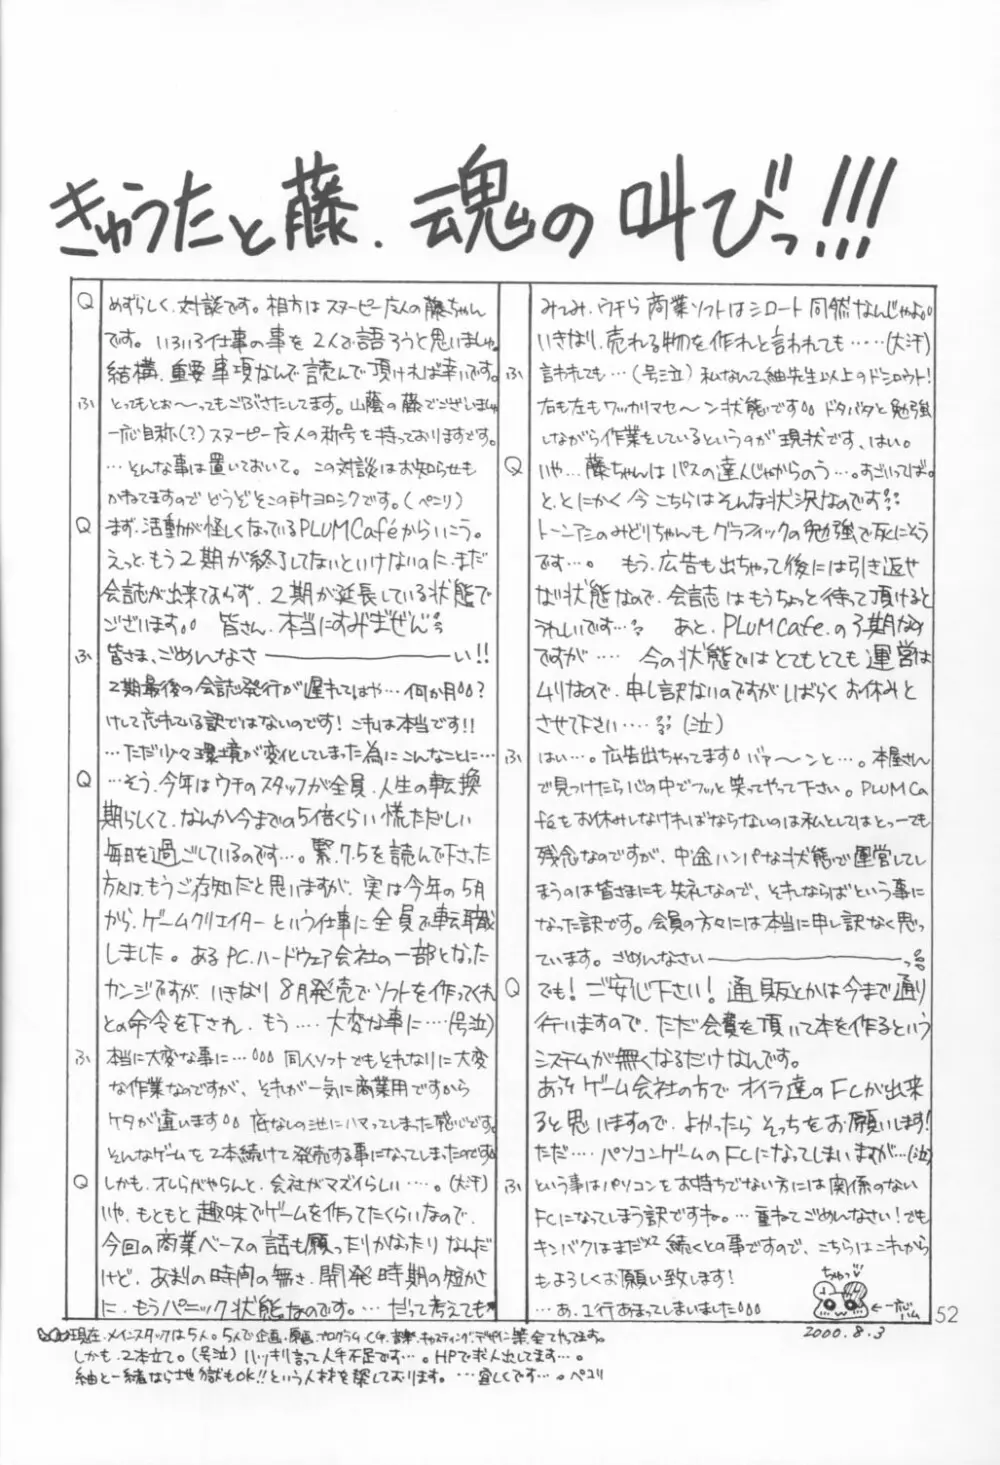 きゅうたと藤、魂の叫びっ!!!
Q めずらしく、対談です。相方はスヌーピー友人の藤ちゃん
です。いろいろ仕事の事を2人で語ろうと思いましゅ。
結構、重要事項なんで読んで頂ければ幸いです。
ふ とってもとお〜ってもごぶさたしてます。山蔭の藤でございましゅ
一応自称(?)スヌーピー友人の称号を持っておりますです。
…そんな事は置いておいて。この対談はお知らせも
かねてますので どうぞそこの所ヨロシクです。(ペこリ)
Q まず、活動が怪しくなっているPLUMCaféからいこう。
えっと、もう2期が終了してないといけないのに、まだ
会誌が出来ておらず、2期が延長している状態で
ございます。。 皆さん、本当にすみませぜん
ふ 皆さま、ごめんなさ――――――い!!
2期最後の会誌発行が遅れてはや…何か月。。?
けして忘れている訳ではないのです! これは本当です!!
…ただ少々環境が変化してしまった為にこんなことに…
Q …そう、今年はウチのスタッフが全員、人生の転換
期らしくて、なんか今までの5倍くらい慌ただしい
毎日を過ごしているのです…。緊7.5を読んで下さった
方々は、もうご存知だと思いますが、実は今年の5月
から、ゲームクリエイターという仕事に全員で転職
しました。あるPC.ハードウェア会社の一部となった
カンジですが、いきなり8月発売でソフトを作ってくれ
との命令を下され、もう‥‥大変な事に…(号泣)
ふ 本当に大変な事に…。。。同人ソフトでもそれなりに大変
な作業なのですが、それが一気に商業用ですから
ケタが違います。。 底なしの池にハマってしまった感じです。
そんなゲームを2本続けて発売する事になってしまったのです。
Q しかも、オレらがやらんと、会社がマズイらしい‥‥。(大汗)
いや、もともと趣味でゲームを作ってたくらいなので、
今回の商業ベースの話も願ったりかなったりなんだ
けど、あまりの時間の無さ、開発時期の短かさ
に、もうパニック状態なのです。…だって考えても
みつみ、ウチら商業ソフトはシロート同然なんじゃよ。。
いきなり、売れる物を作れと言われても‥‥(大汗)
ふ 言われても…(号泣)私なんて紬先生以上のドシロウト!
右も左もワッカリマセ〜ン状態です。。ドタバタと勉強
しながら作業をしているというのが現状です、はい。
Q いや…藤ちゃんはパスの達人じゃからのう…。すごいってば。
と、とにかく今こちらはそんな状況なのです
トーンアニのみどりちゃんもグラフィックの勉強で死にそう
です…。 もう、広告も出ちゃって後には引き返せ
ない状態なので、会誌はもうちょっと待って頂けると
うれしいです… あと、PLUMCafe.の3期なん
ですが‥‥ 今の状態ではとてもとても運営は
ムリなので、申し訳ないのですがしばらくお休みと
させて下さい‥‥(泣)
ふ はい…。広告出ちゃってます。バァ〜ンと…。本屋さん
で見つけたら心の中でフッと笑ってやって下さい。PLUMCa
féをお休みしなければならないのは私としてはとっーても
残念なのですが、中途ハンパな状態で運営してし
まうのは皆さまにも失礼なので、それならばという事に
なった訳です。会員の方々には本当に申し訳なく思っ
ています。ごめんなさい――――――っ
Q でも! ご安心下さい! 通販とかは今まで通り
行いますので、ただ会費を頂いて本を作るという
システムが無くなるだけなんです。
あっそ ゲーム会社の方でオイラ達のFCが出来
ると思いますので、よかったらそっちをお願いします!
ただ‥‥パソコンゲームのFCになってしまいますが…(泣)
ふ という事はパソコンをお持ちでない方には関係のない
FCになってしまう訳ですね。…重ねてごめんなさい! でも
キンバクはまだまだ続くとの事ですので、こちらはこれから
もよろしくお願い致します!
…あ、1行あまってしまいました。。。
ちゅっ
←一応ハム
2000.8.3
52
現在、メインスタッフは5人。5人で企画、原画、プログラム、CG、音楽、キャスティング、デザイン業、全てやってます。
しかも、2本立て。(号泣) ハッキリ言って人手不足です…。HPで求人出してます…。
紬と一緒なら地獄もOK!! という人材を探しております。…宜しくです…。ペコリ